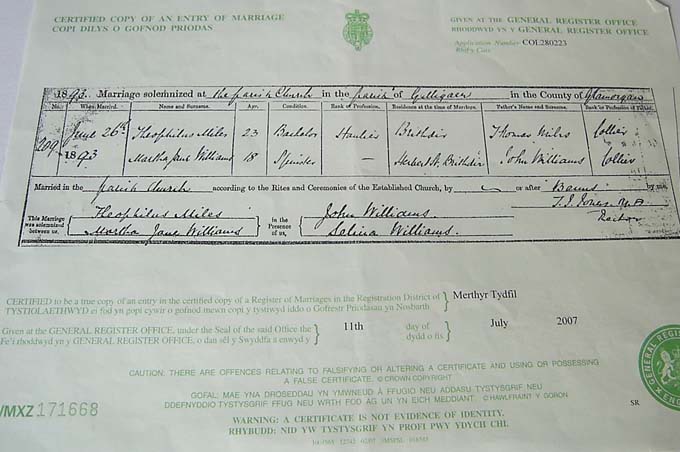 CERTIFIED COPY OF AN ENTRY OF MARRIAGE
COPI DILYS O GOFNOD PRIODAS
GIVEN AT THE GENERAL REGISTER OFFICE
RHODDWYD YN Y GENERAL REGISTER OFFICE
Application Number COL280223
1893. Marriage solemnized at the parish Church in the parish of Gelligaer in the County of Glamorgan
No. When Married. Name and Surname. Age. Condition. Rank or Profession. Residence at the time of Marriage. Father's Name and Surname. Rank or Profession of Father.
209 June 26th Theophilus Miles 23 Bachelor Haulier Brithdir Thomas Miles Collier
1893 Martha Jane Williams 18 Spinster — Herbert St, Brithdir John Williams Collier
Married in the parish Church according to the Rites and Ceremonies of the Established Church, by or after Banns by me,
This Marriage was solemnized between us, Theophilus Miles Martha Jane Williams in the Presence of us, John Williams. Selina Williams.
T. J. Jones, M.A.
Rector
CERTIFIED to be a true copy of an entry in the certified copy of a Register of Marriages in the Registration District of Merthyr Tydfil
TYSTIOLAETHWYD ei fod yn gopi cywir o gofnod mewn copi y tystiwyd iddo o Gofrestr Priodasau yn Nosbarth
Given at the GENERAL REGISTER OFFICE, under the Seal of the said Office the 11th day of July 2007
Fe'i rhoddwyd yn y GENERAL REGISTER OFFICE, o dan sêl y Swyddfa a enwyd y dydd o fis
CAUTION: THERE ARE OFFENCES RELATING TO FALSIFYING OR ALTERING A CERTIFICATE AND USING OR POSSESSING
A FALSE CERTIFICATE. © CROWN COPYRIGHT
GOFAL: MAE YNA DROSEDDAU YN YMWNEUD Â FFUGIO NEU ADDASU TYSTYSGRIF NEU
DDEFNYDDIO TYSTYSGRIF FFUG NEU WRTH FOD AG UN YN EICH MEDDIANT. © HAWLFRAINT Y GORON
WARNING: A CERTIFICATE IS NOT EVIDENCE OF IDENTITY.
RHYBUDD: NID YW TYSTYSGRIF YN PROFI PWY YDYCH CHI.
MXZ 171668
SR